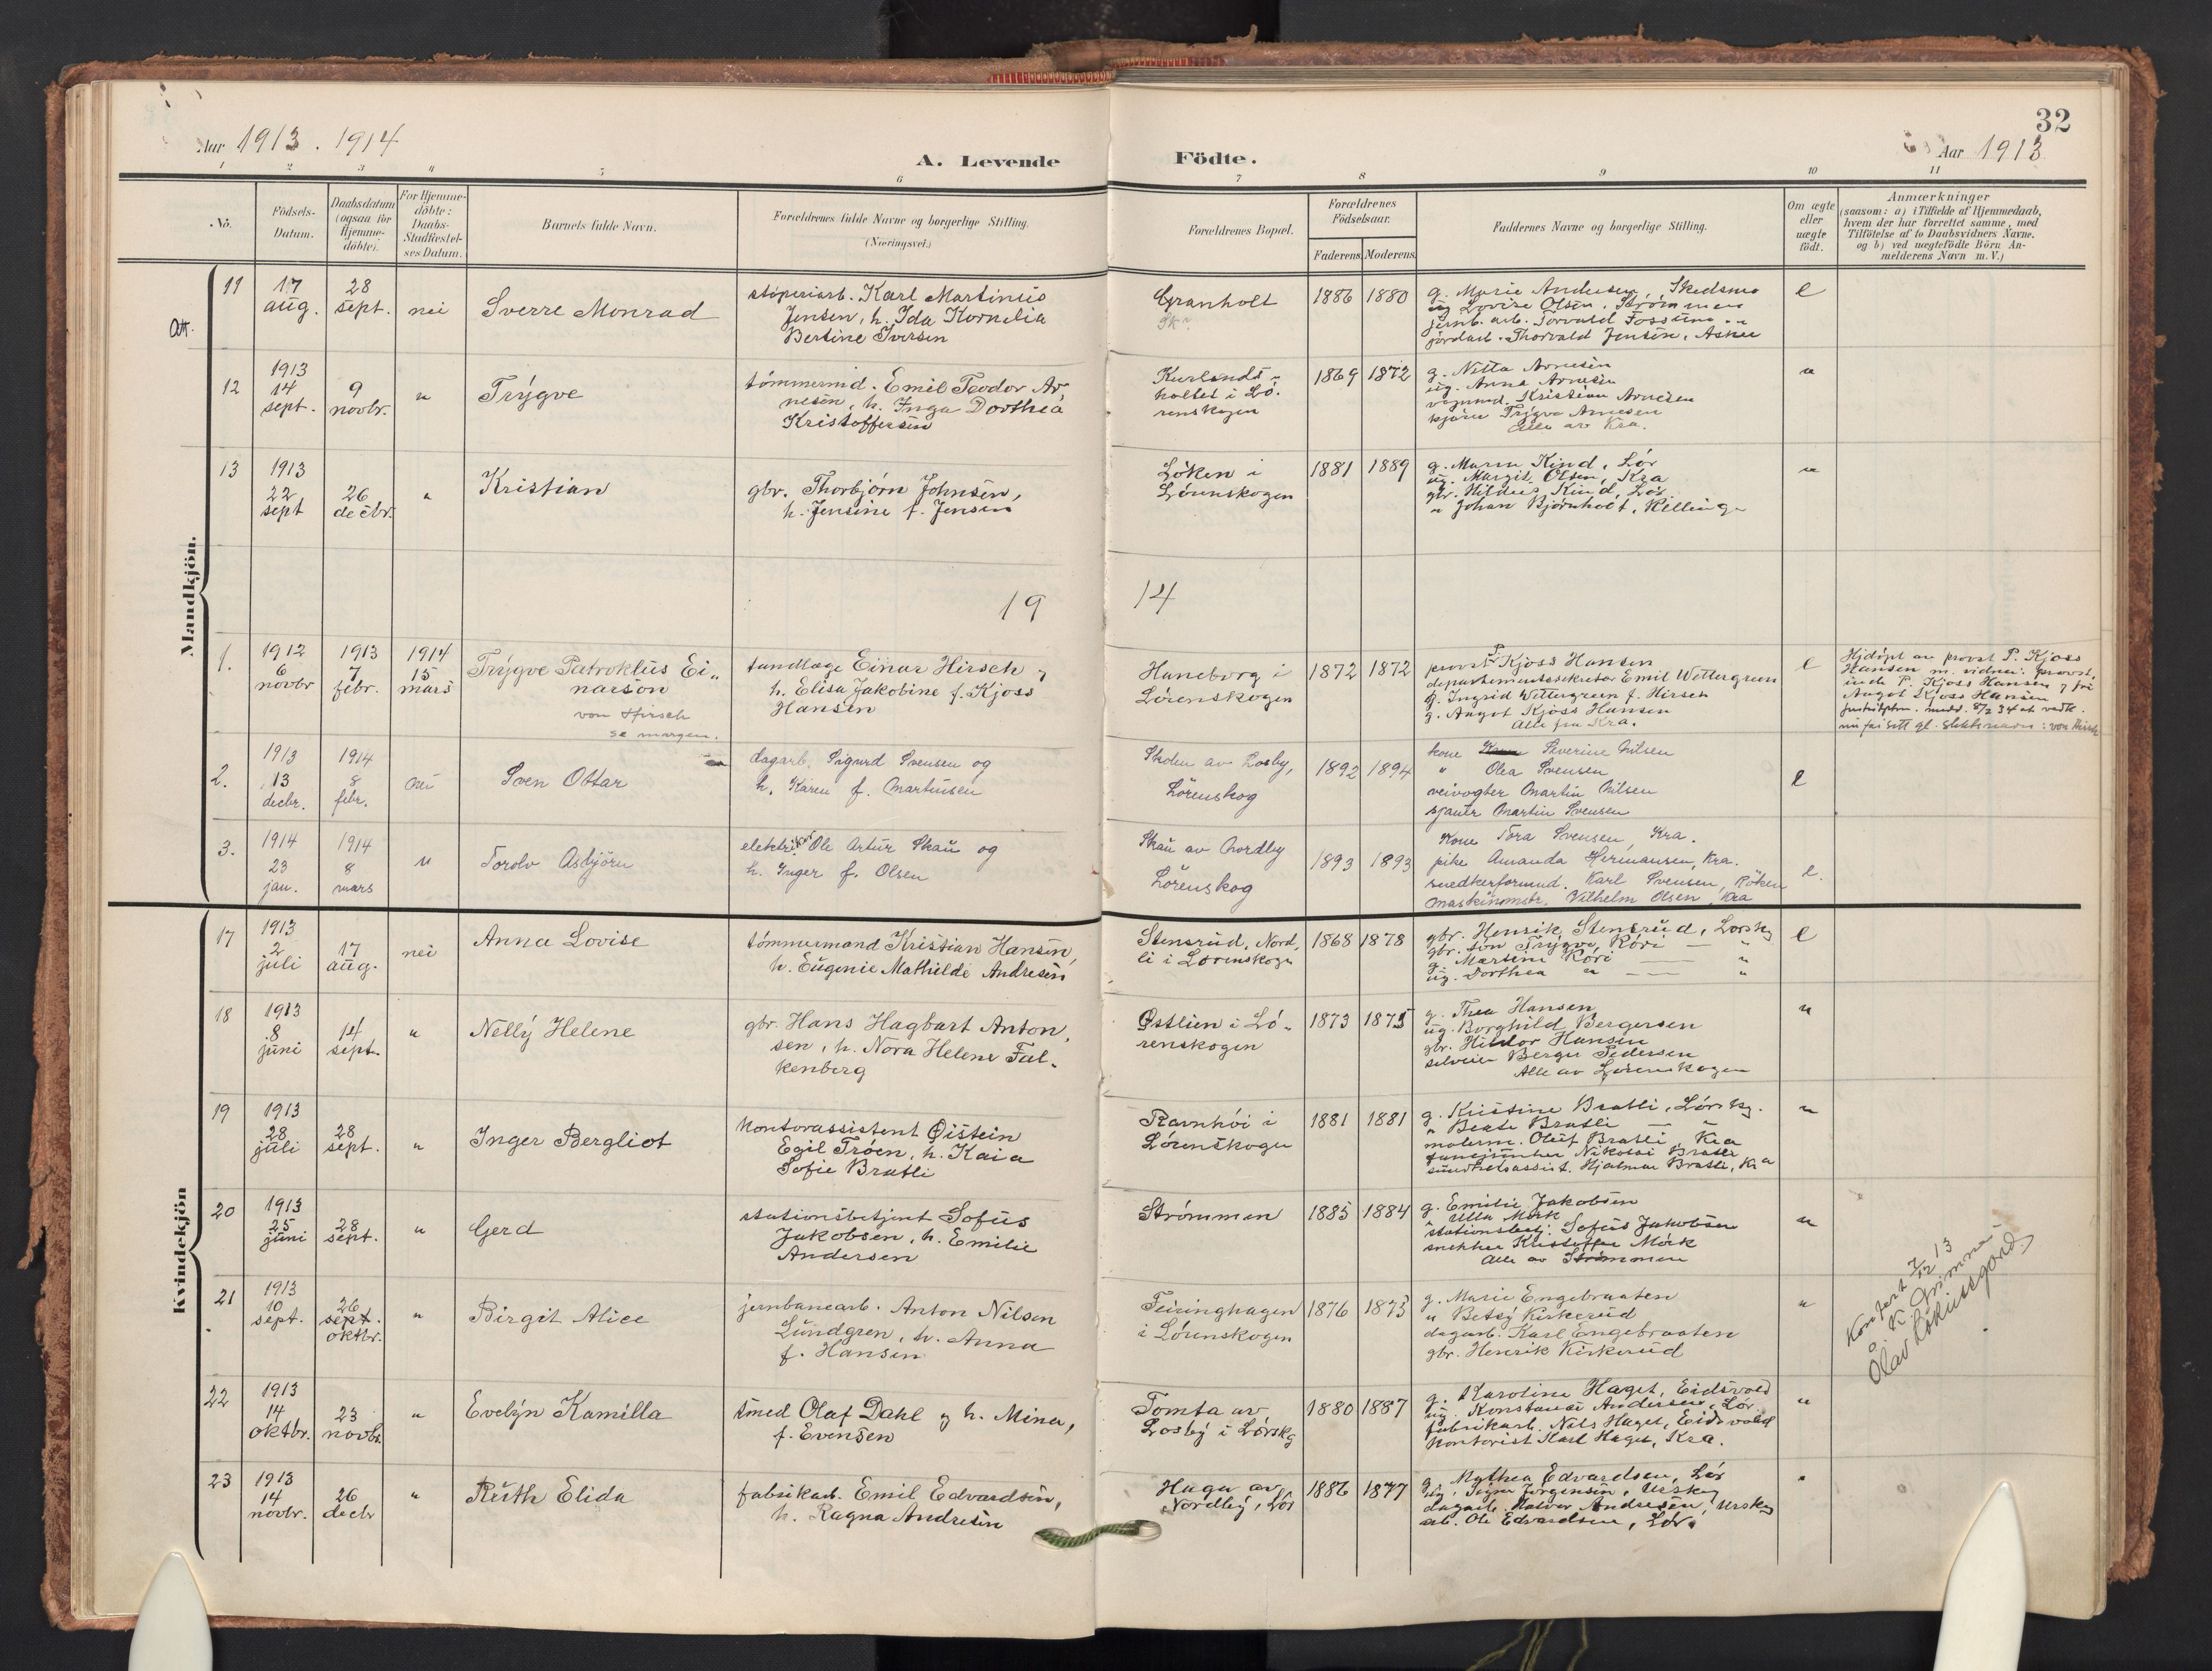 32
Aar 1913. 1914
A. Levende
Födte.
Aar 1913
1 2 3 4 5 6 7 8 9 10 11
No.
Födsels-
Datum.
Daabsdatum
(ogsaa for
Hjemme-
döbte).
For Hjemme-
döbte:
Daabs-
Stadfæstel-
ses Datum.
Barnets fulde Navn.
Forældrenes fulde Navne og borgerlige Stilling.
(Næringsvei.)
Forældrenes Bopæl.
Forældrenes
Födselsaar.
Faderens. Moderens.
Faddernes Navne og borgerlige Stilling.
Om ægte
eller
uægte
födt.
Anmærkninger
(saasom: a) i Tilfælde af Hjemmedaab,
hvem der har forrettet samme, med
Tilföielse af to Daabsvidners Navne.
og b) ved uægtefödte Börn An-
melderens Navn m. V.)
Mandkjön.
11
17
aug.
28
sept.
nei
Sverre Monrad
støperiarb. Karl Martinius
Jensen, h. Ida Kornelia
Bertine Iversen
Granholt
Sk.
1886 1880
g. Marie Andersen, Skedsmo
ug. Lovise Olsen, Strømmen
jernb. arb. Torvald Fossum "
jordarb. Thorvald Jensen, Asker
e
12
1913
14
sept.
9
novbr.
"
Trygve
tømmermd. Emil Teodor Ar-
nesen, h. Inga Dorthea
Kristoffersen
Kurlands-
holtet i Lø-
renskogen
1869 1872
g. Nitta Arnesen
ug. Anna Arnesen
vognmd. Kristian Arnesen
kjører Trygve Arnesen
Alle av Kra.
"
13
1913
22
sept
26
decbr.
"
Kristian
gbr. Thorbjørn Johnsen,
h. Jensine f. Jensen
Løken i
Lørenskogen
1881 1889
g. Maren Kind, Lør
ug. Margit Olsen, Kra
gbr. Hildus Kind, Lør
" Johan Bjørnholt, Killing
"
19 14
1.
1912
6
novbr
1913
7
febr.
1914
15
mars
Trygve Patroklus Ei-
narson
von Hirsch
se margen.
tandlæge Einar Hirsch og
h. Elisa Jakobine f. Kjoss
Hansen
Haneborg i
Lørenskogen
1872 1872
provst P. Kjoss Hansen
departementssekretær Emil Wettergreen
g. Ingrid Wettergreen f. Hirsch
g. Augot Kjoss Hansen
Alle fra Kra.
e
Hjdøpt av provst P. Kjoss
Hansen m. vidner: provst-
inde P. Kjoss Hansen og frk
Augot Kjoss Hansen
2.
1913
13
decbr.
1914
8
febr.
nei
Sven Ottar
dagarb. Sigurd Svensen og
h. Karen f. Martinsen
Skolen av Losby,
Lørenskog
1892 1894
kone Severine Nilsen
" Olea Svensen
veivogter Martin Nilsen
sjauer Martin Svensen
e
3.
1914
23
jan.
1914
8
mars
"
Torolv Asbjörn
Ole Artur Skau og
h. Inger f. Olsen
Skau av Nordby
Lörenskog
1893 1893
Kone Tora Svensen, Kra.
pike Amanda Hermansen, Kra.
snedkerformand. Karl Svensen, Röken
maskinmstr. Vilhelm Olsen, Kra
e.
Kvindekjön
17
1913
2
juli
17
aug.
nei
Anna Lovise
tömmermand Kristian Hansen,
h. Eugenie Mathilde Andresen
Stensrud, Nord-
li i Lørenskogen
1868 1878
gbr. Henrik Stensrud, Lørskg
gbr. søn Trygve Röri — "
g. Martine Röri — "
ug. Dorthea " — "
e
18
1913
8
juni
14
sept.
"
Nelly Helene
gbr. Hans Hagbart Anton-
sen, h. Nora Helene Fal-
kenberg
Østlien i Lø-
renskogen
1873 1875
g. Thea Hansen
ug. Borghild Bergersen
gbr. Hildor Hansen
selveier Berger Pedersen
Alle av Lørenskogen
"
19
1913
28
juli
28
sept.
"
Inger Bergliot
Kontorassistent Øistein
Egil Trøen, h. Kaia
Sofie Bratli
Ravnhöi i
Lörenskogen
1881 1881
g. Kristine Bratli, Lörskg.
" Beate Bratli — "
malerm. Oluf Bratli, Kra
Nikolai Bratli
Hjalmar Bratli, Kra
"
20
1913
25
juni
28
sept.
"
Gerd
stationsbetjent Sofus
Jakobsen, h. Emilie
Andersen
Strømmen
1885 1884
g. Emilie Jakobsen
" Ulla Mørk
stationsbetj. Sofus Jakobsen
snekker Kristoffer Mörk
Alle av Strømmen
"
21
1913
10
sept.
26
sept.
oktbr.
"
Birgit Alice
jernbanearb. Anton Nilsen
Lundgren, h. Anna
f. Hansen
Feiringhagen
i Lørenskogen
1876 1873
g. Marie Engebraaten
" Betsy Kirkerud
dagarb. Karl Engebraaten
gbr. Henrik Kirkerud
"
Konfert 7/12 13
K Grimnes
Olav Løkensgard
22
1913
14
oktbr.
23
novbr.
"
Evelyn Kamilla
smed Olaf Dahl og h. Mina,
f. Evensen
Tomta av
Losby i Lörskg
1880 1887
g. Karoline Haget, Eidsvold
ug. Konstanse Andersen, Lör.
fabrikarb. Nils Haget, Eidsvold
Kontorist Karl Haget, Kra.
"
23
1913
14
novbr.
26
decbr
"
Ruth Elida
fabrikarb. Emil Edvardsen,
h. Ragna Andresen
Haga av
Nordby, Lör
1886 1877
g. Mathea Edvardsen, Lör
ug. Signe Jørgensen, Urskog
dagarb. Halvor Andresen, Urskog
arb. Ole Edvardsen, Lör.
"